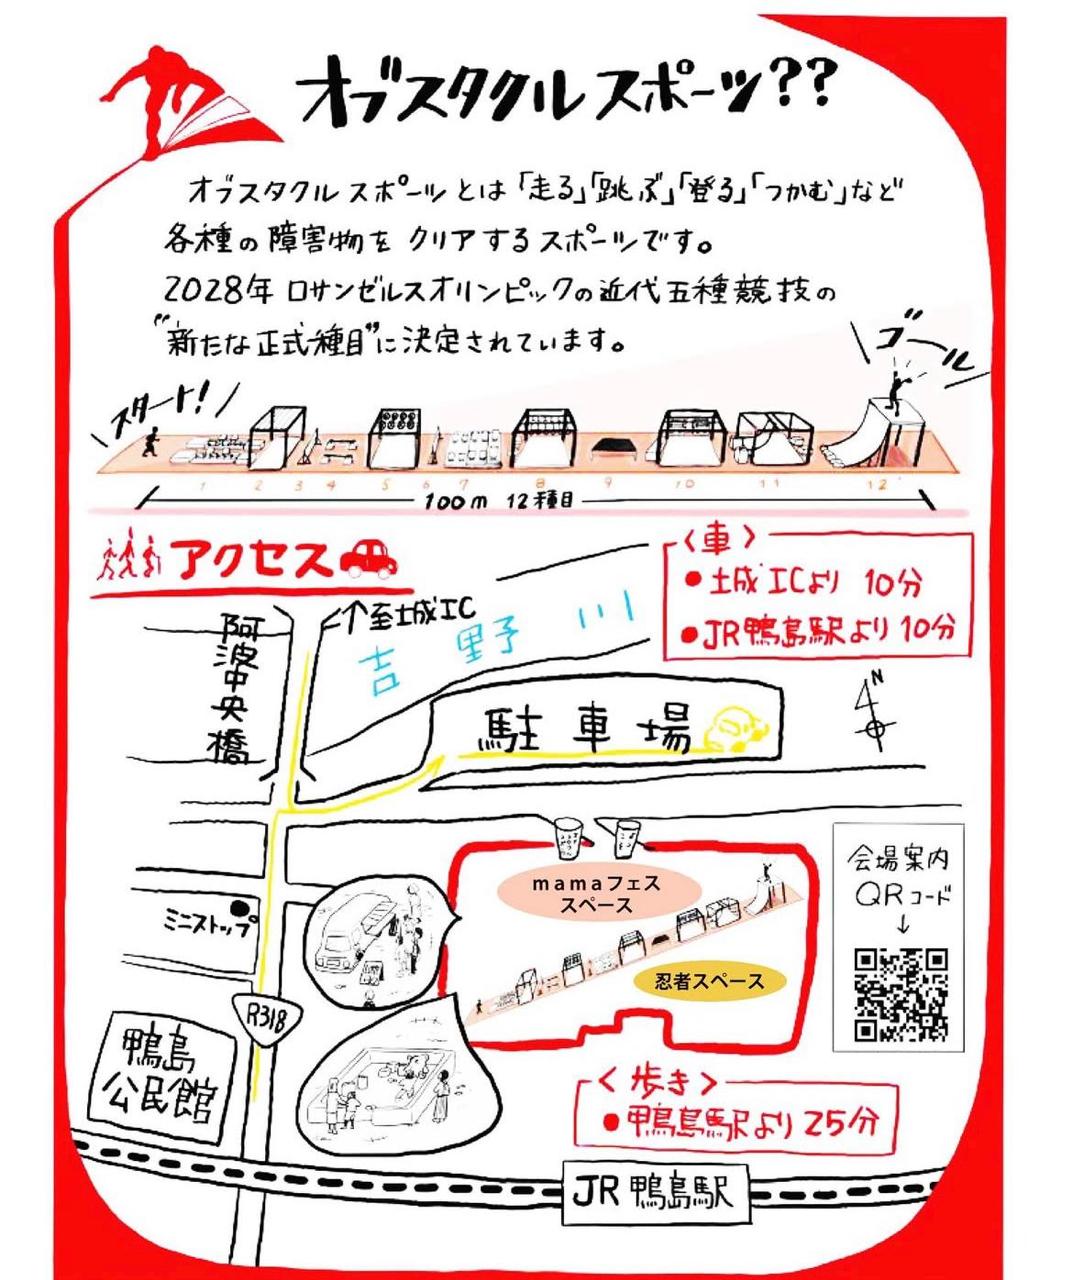 オブスタクルスポーツ??
オブスタクルスポーツとは「走る」「跳ぶ」「登る」「つかむ」など
各種の障害物をクリアするスポーツです。
2028年ロサンゼルスオリンピックの近代五種競技の
"新たな正式種目"に決定されています。
スタート!
ゴール
1 2 3 4 5 6 7 8 9 10 11 12
100m 12種目
アクセス
〈車〉
●土成ICより 10分
●JR鴨島駅より10分
↑至土成IC
阿波中央橋
吉野川
駐車場
N
ミニストップ
mamaフェス
スペース
忍者スペース
会場案内
QRコード
↓
R318
鴨島
公民館
〈歩き〉
●鴨島駅より25分
JR鴨島駅